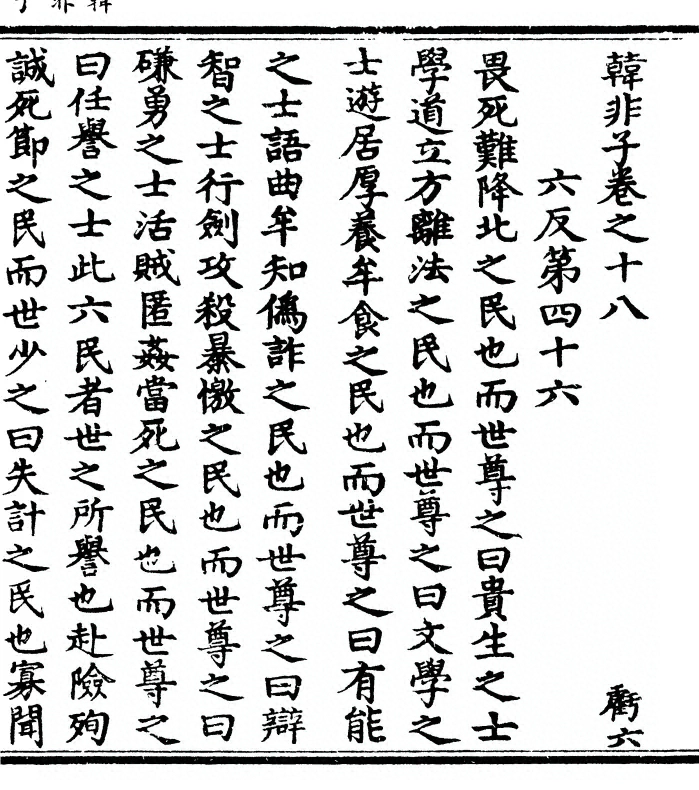 韓非子卷之十八 虧六
六反第四十六
畏死難降北之民也而世尊之曰貴生之士
學道立方離法之民也而世尊之曰文學之
士遊居厚養牟食之民也而世尊之曰有能
之士語曲牟知僞詐之民也而世尊之曰辯
智之士行劍攻殺暴憿之民也而世尊之曰
磏勇之士活賊匿姦當死之民也而世尊之
曰任譽之士此六民者世之所譽也赴險殉
誠死節之民而世少之曰失計之民也寡聞